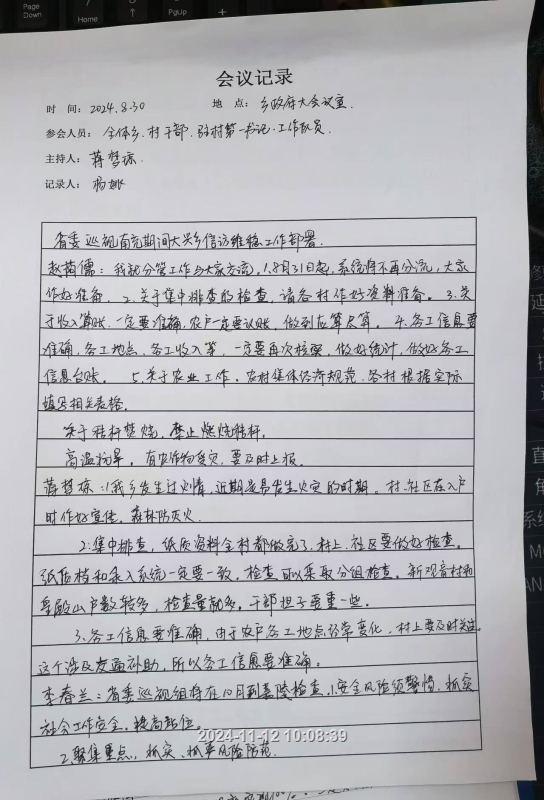 Page
Down
7
Home
8
9
PgUp
会议记录
时 间：2024.8.30 地 点：乡政府大会议室.
参会人员：全体乡、村干部、驻村第一书记、工作队员
主持人：蒋梦琼.
记录人：杨姚
省委巡视南充期间大兴乡信访维稳工作部署.
赵茜儒：我就分管工作与大家交流，1.8月31日起，系统将不再分流，大家
作好准备. 2.关于集中排查的检查，请各村作好资料准备。3.关
于收入算账，一定要准确，农户一定要认账，做到应算尽算。4.务工信息要
准确，务工地点、务工收入等，一定要再次核实，做好统计，做好务工
信息台账。 5.关于农业工作，农村集体经济规范，各村根据实际
填写相关表格.
关于秸秆焚烧，禁止燃烧秸秆.
高温抗旱，有农作物受灾，要及时上报.
蒋梦琼：1.我乡发生过火情，近期是易发生火灾的时期。村、社区在入户
时作好宣传，森林防灭火.
2.集中排查，纸质资料全村都做完了，村上、社区要做好检查.
纸质档和录入系统一定要一致，检查可以采取分组检查，新观音村和
户数较多，检查量就多，干部担子要重一些.
3.务工信息要准确，由于农户务工地点经常变化，村上要及时关注.
这个涉及交通补助，所以务工信息要准确。
李春兰：省委巡视组将在10月到嘉陵检查，1.安全风险须警惕，抓实
社会工作安全，提高站位。
2.聚集重点，抓实、抓严风险防范.
2024-11-12 10:08:39